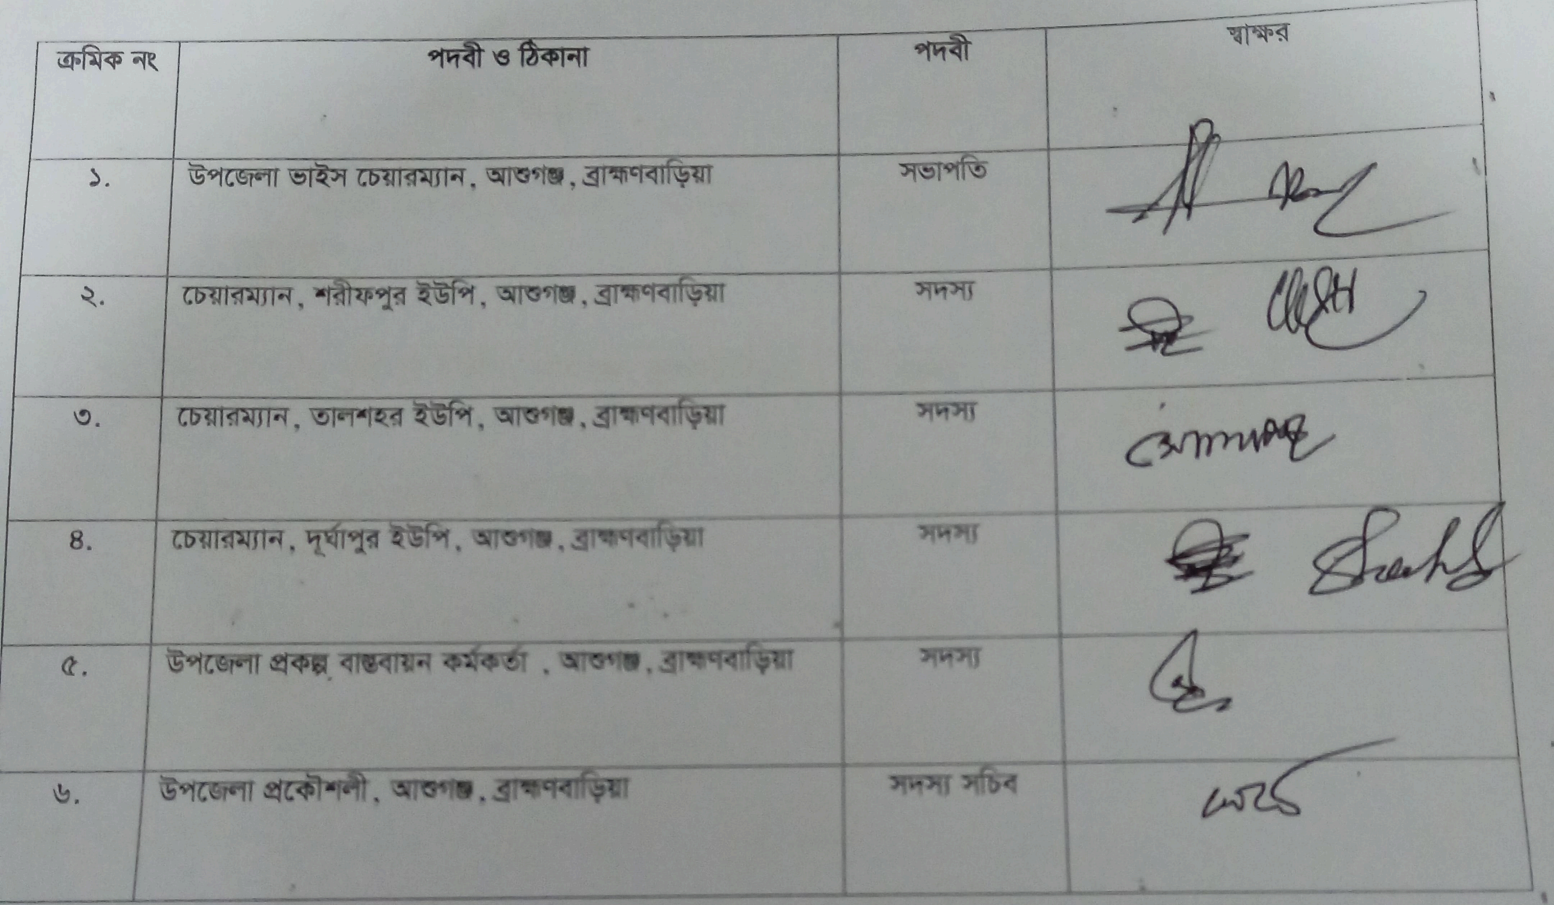 ক্রমিক নং পদবী ও ঠিকানা পদবী স্বাক্ষর
১. উপজেলা ভাইস চেয়ারম্যান, আশুগঞ্জ, ব্রাহ্মণবাড়িয়া সভাপতি
২. চেয়ারম্যান, শরীফপুর ইউপি, আশুগঞ্জ, ব্রাহ্মণবাড়িয়া সদস্য
৩. চেয়ারম্যান, তালশহর ইউপি, আশুগঞ্জ, ব্রাহ্মণবাড়িয়া সদস্য
৪. চেয়ারম্যান, দূর্ঘাপুর ইউপি, আশুগঞ্জ, ব্রাহ্মণবাড়িয়া সদস্য
৫. উপজেলা প্রকল্প বাস্তবায়ন কর্মকর্তা , আশুগঞ্জ, ব্রাহ্মণবাড়িয়া সদস্য
৬. উপজেলা প্রকৌশলী, আশুগঞ্জ, ব্রাহ্মণবাড়িয়া সদস্য সচিব